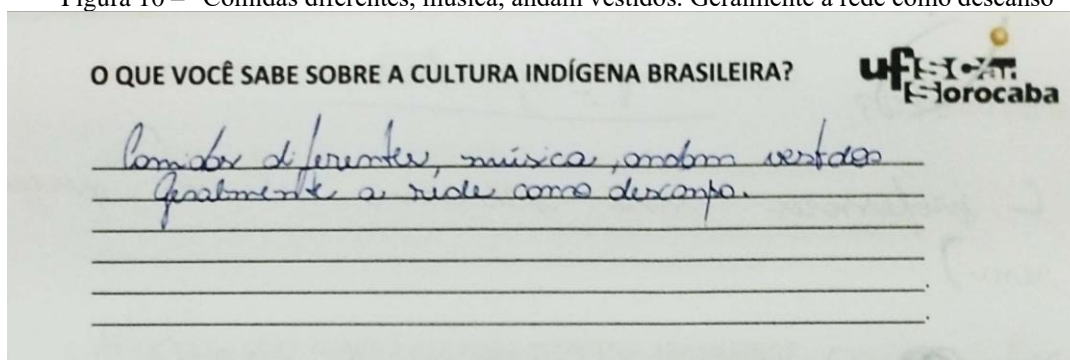 Figura 10 – "Comidas diferentes, música, andam vestidos. Geralmente a rede como descanso"
O QUE VOCÊ SABE SOBRE A CULTURA INDÍGENA BRASILEIRA?
ufscar
Sorocaba
Comidas diferentes, música, andam vestidos
Geralmente a rede como descanso.